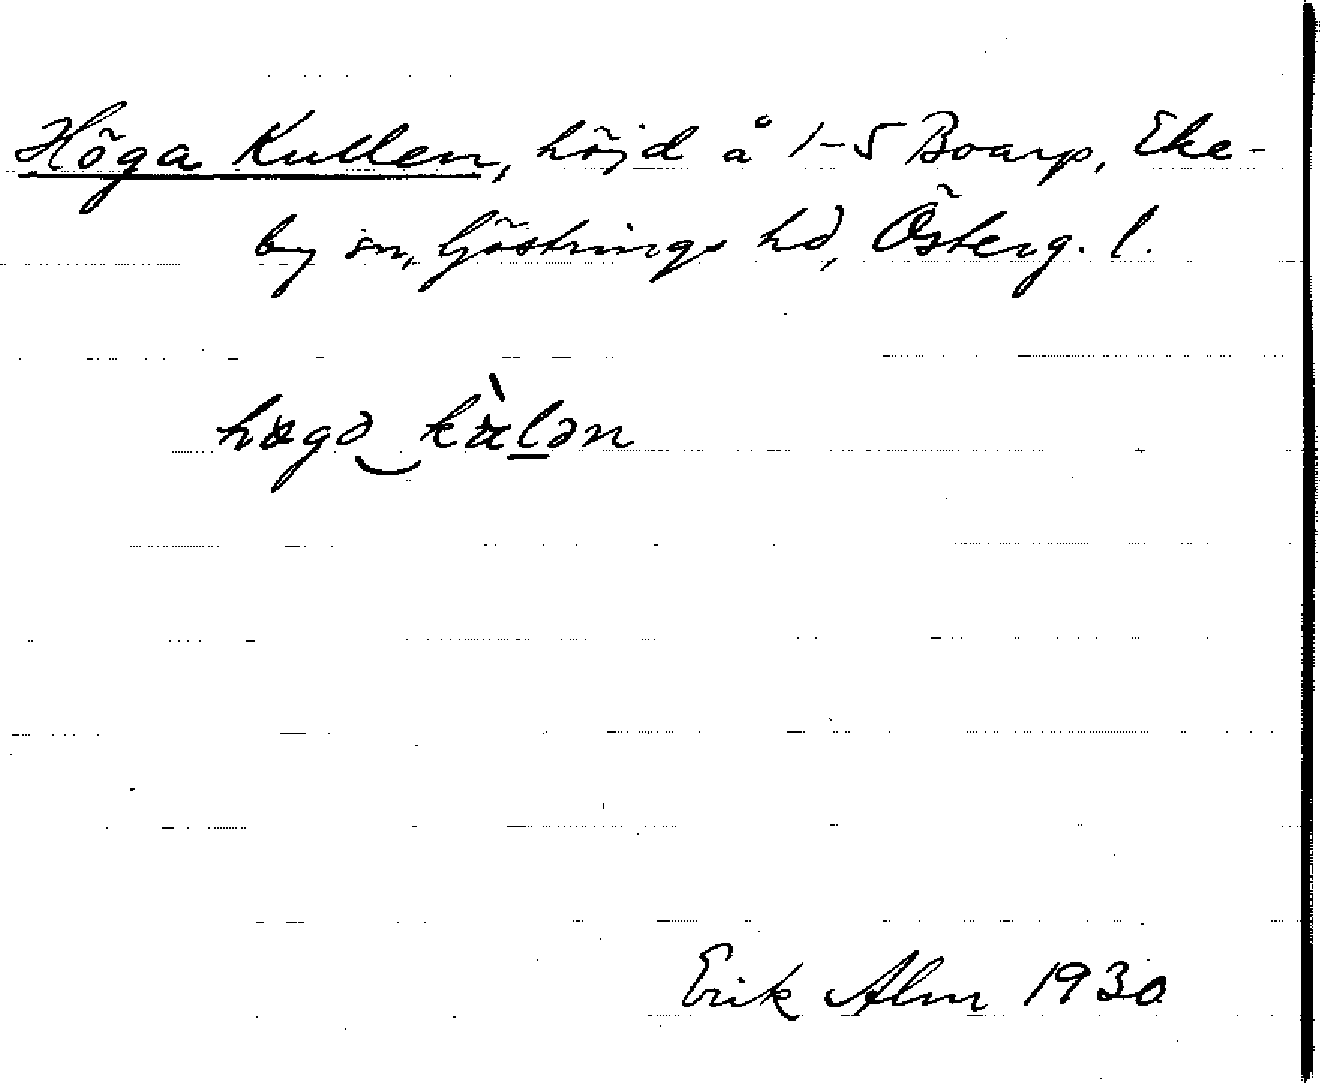 Höga Kullen, höjd å 1-5 Boarp, Eke-
by sn, Göstrings hd, Österg. l.
høgə kø̀lən
Erik Alm 1930